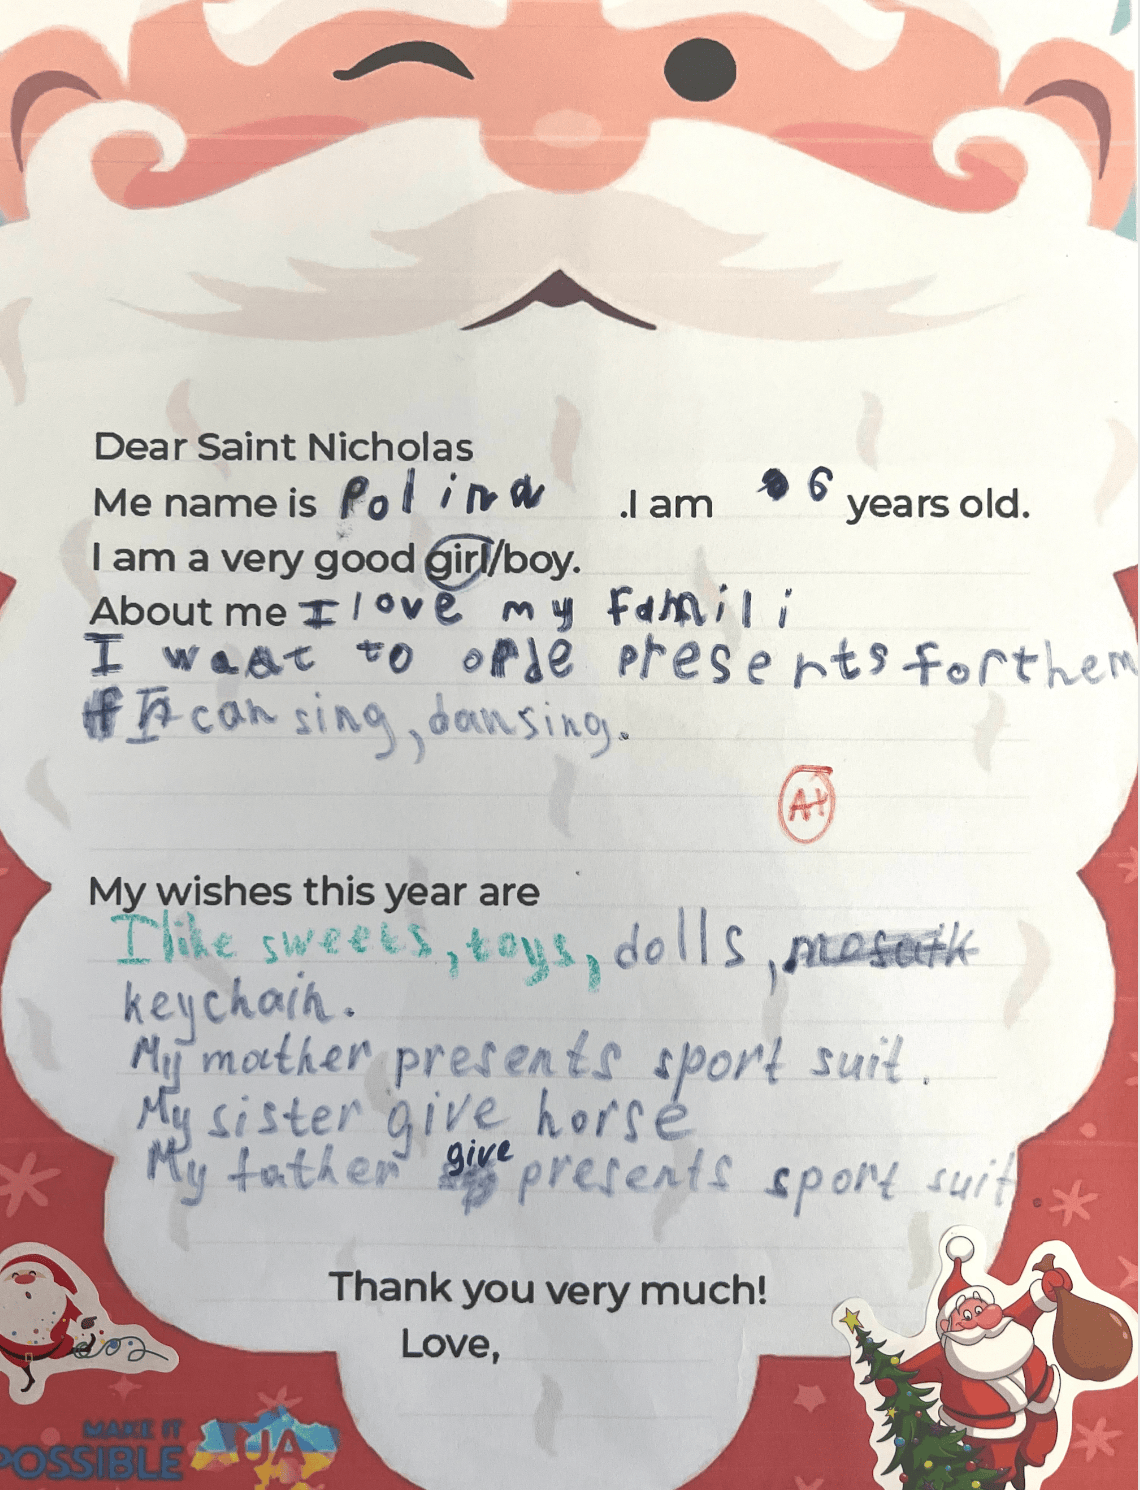 Dear Saint Nicholas
Me name is Polina .I am 6 years old.
I am a very good girl/boy.
About me I love my famili
I want to orde presents for them
I can sing, dansing.
A+
My wishes this year are
I like sweets, toys, dolls,
keychain.
My mather presents sport suit.
My sister give horse
My father give presents sport suit.
Thank you very much!
Love,
MAKE IT
POSSIBLE UA